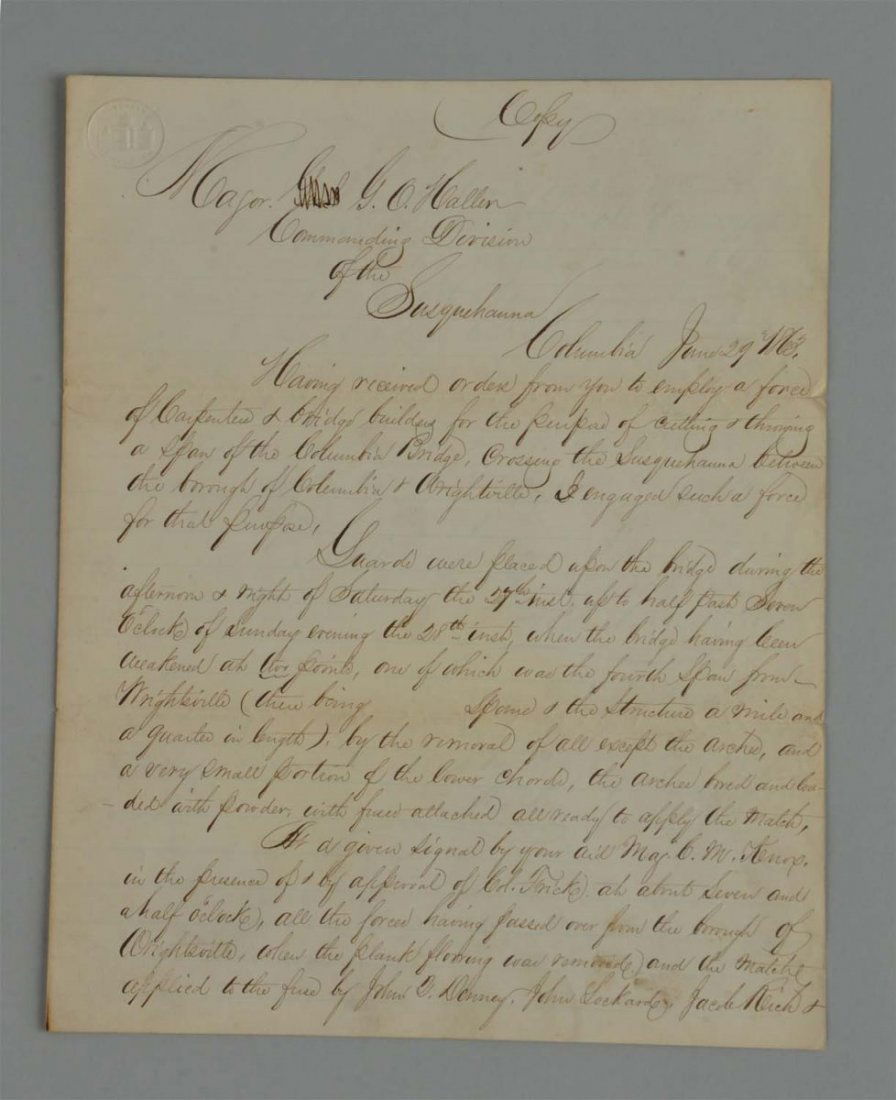 Copy
Major. G. O. Haller
Commanding Division
of the
Susquehanna
Columbia June 29th 1863.
Having received orders from you to employ a force
of Carpenters & bridge builders for the purpose of cutting & throwing
a span of the Columbia Bridge, crossing the Susquehanna between
the borough of Columbia & Wrightsville, I engaged such a force
for that purpose,
Guards were placed upon the bridge during the
afternoon & night of Saturday the 27th inst. up to half past Seven
O'clock of Sunday evening the 28th inst, when the bridge having been
weakened at two points, one of which was the fourth Span from
Wrightsville (there being Spans & the structure a mile and
a quarter in length), by the removal of all except the arches, and
a very small portion of the lower chords, the arches bored and loa-
-ded with powder, with fuses attached all ready to apply the match,
At a given signal by your aid Maj. C. M. Knox.
in the presence of & by approval of Col. Frick at about seven and
a half O'clock, all the forces having passed over from the borough of
Wrightsville, when the plank flooring was removed and the matche
applied to the fuse by John Q. Denney, John Lockard, Jacob Rich &